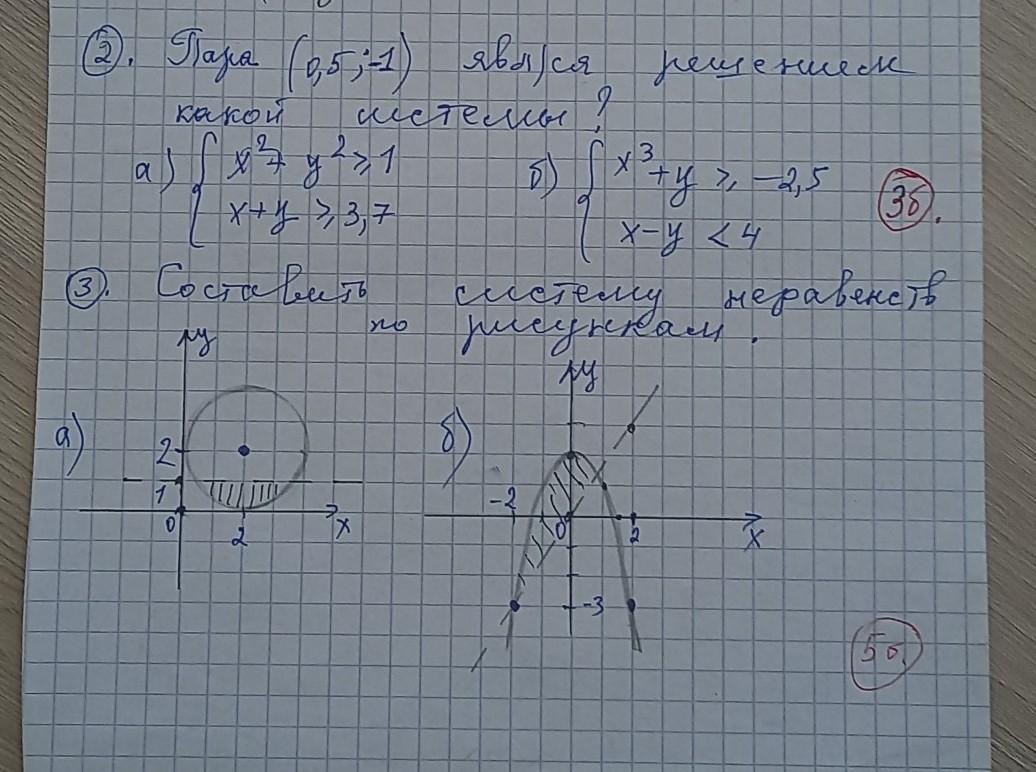 2. Пара (0,5; -1) явл/ся решением
какой системы?
а) { x² + y² ⩾ 1 б) { x³ + y ⩾ -2,5
x + y ⩾ 3,7 x - y < 4
3б.
3. Составить систему неравенств
по рисункам.
а) y 2 1 0 2 x
б) y -2 0 2 x -3
5б.